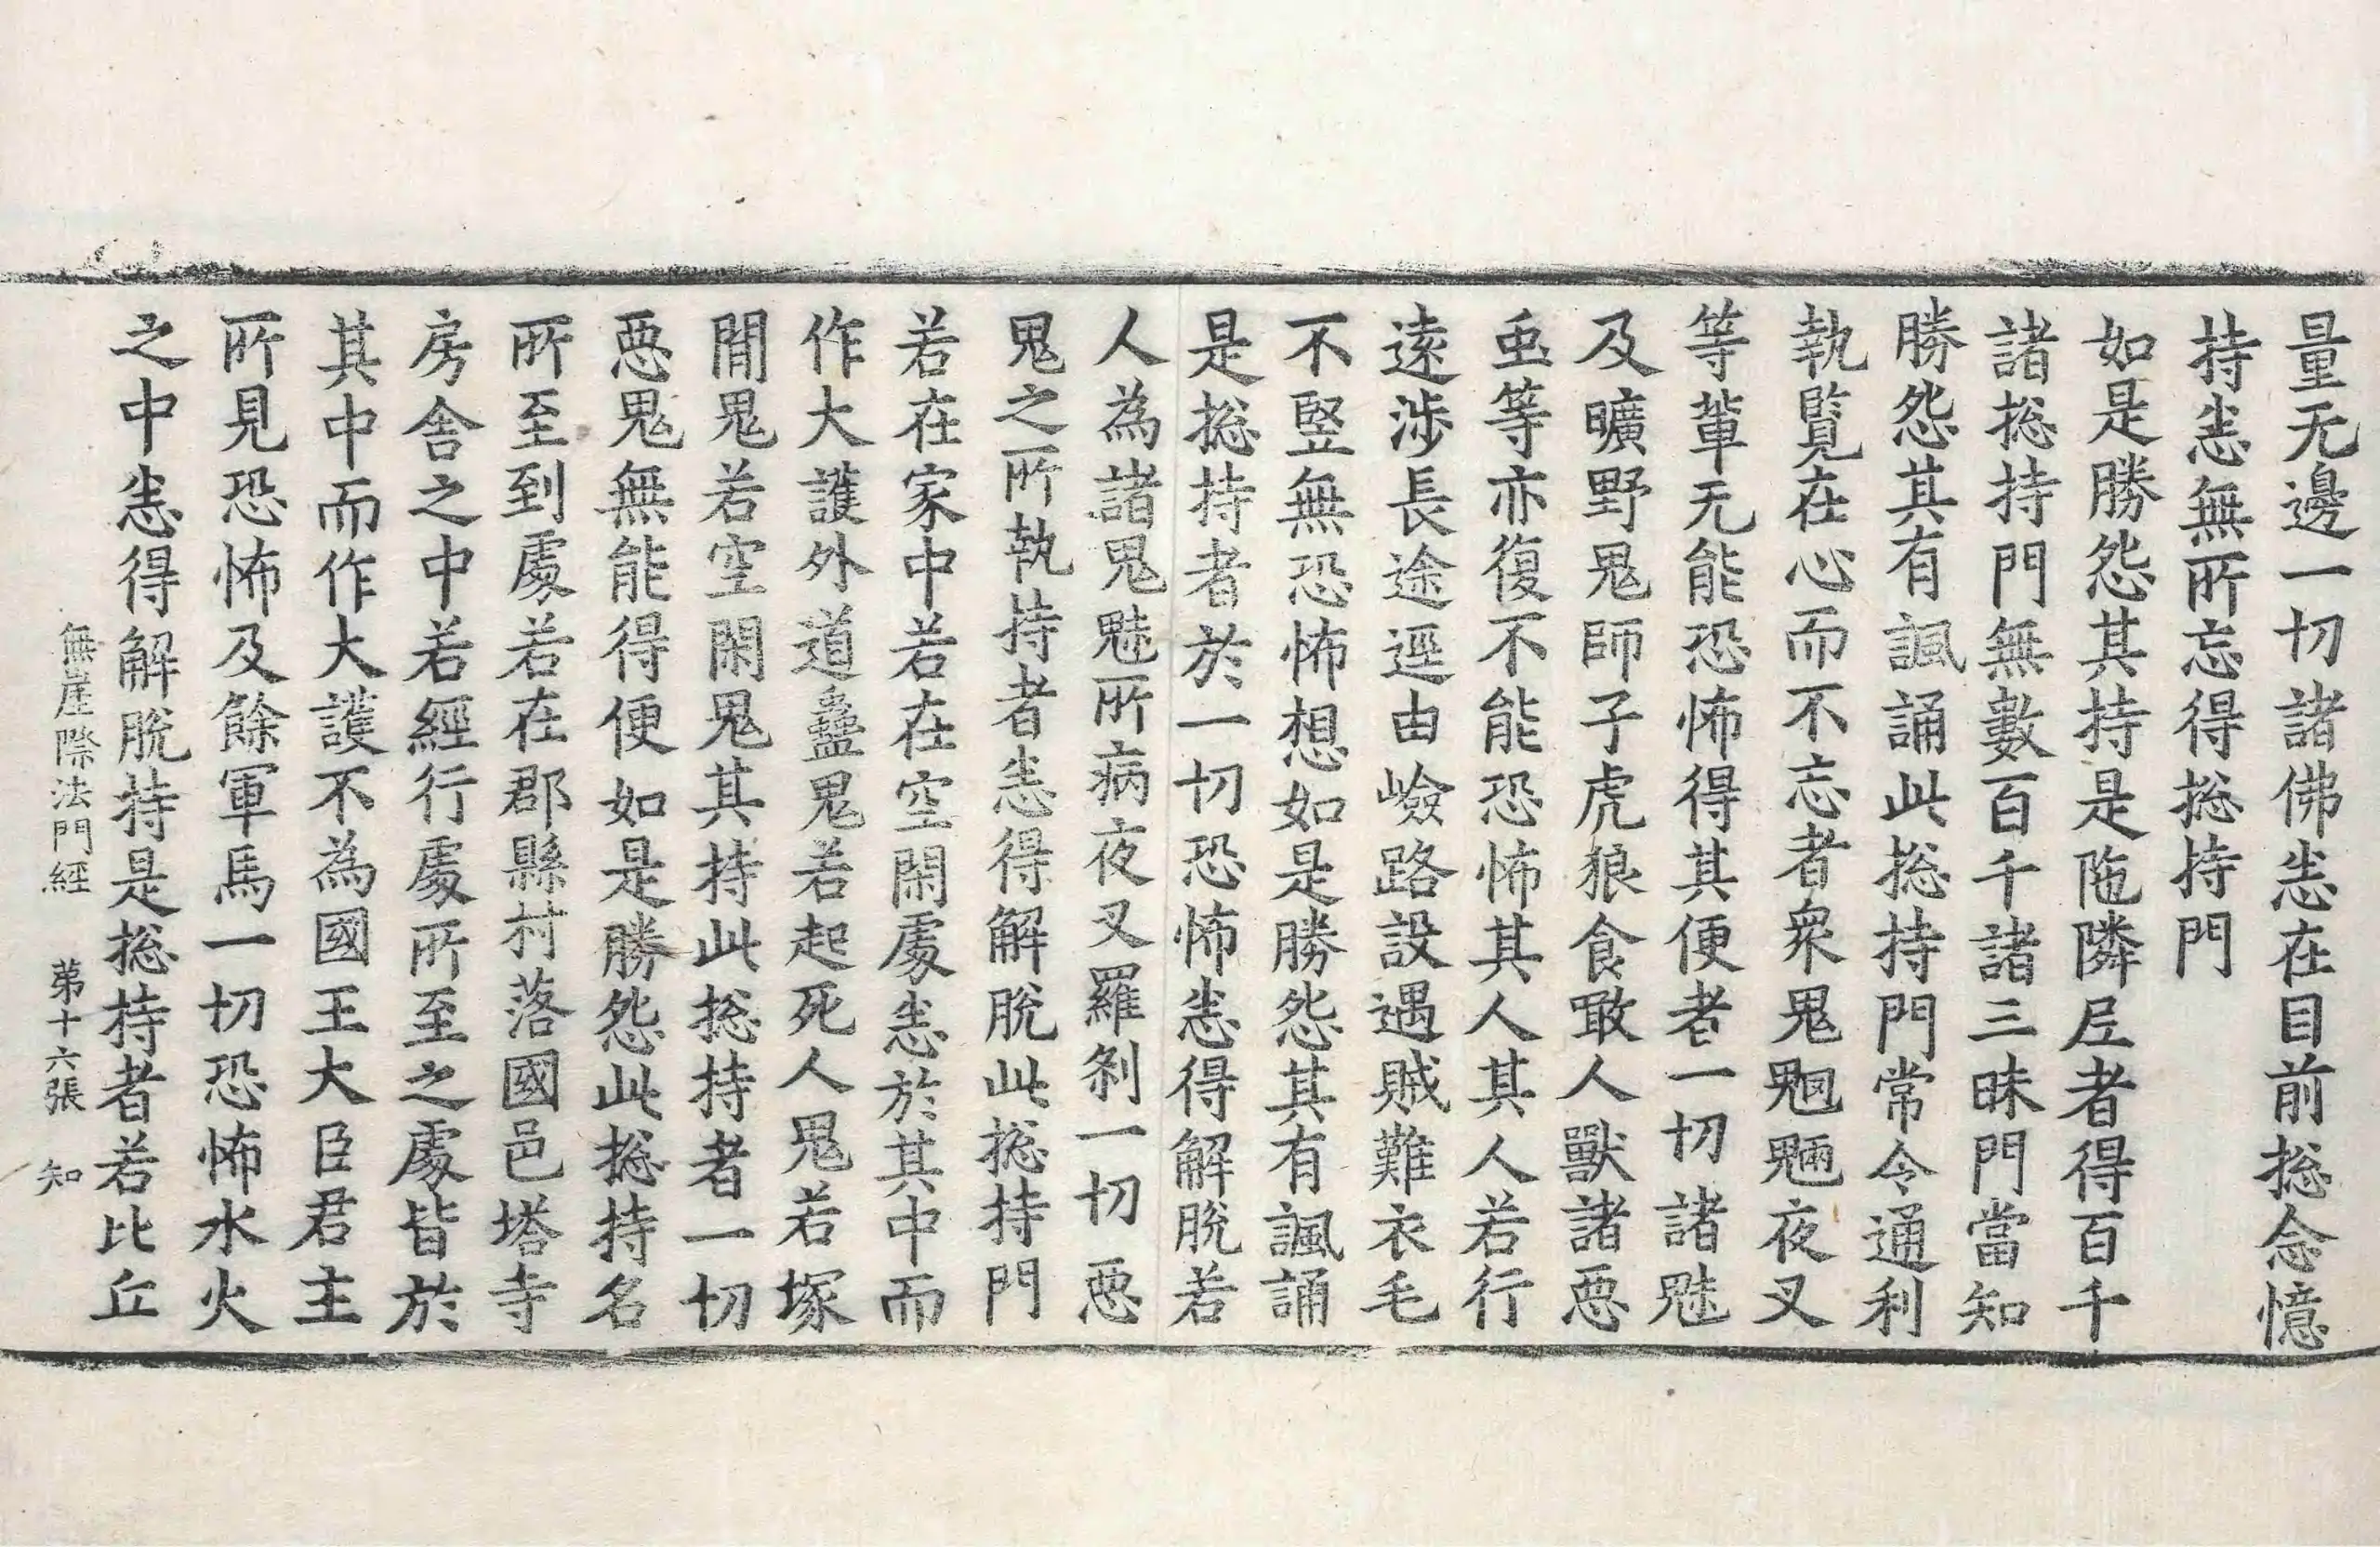 量无邊一切諸佛恚在目前揔念憶
持恚無所忘得揔持門
如是勝怨其持是陁隣𡰱者得百千
諸揔持門無數百千諸三昧門當知
勝怨其有諷誦此揔持門常令通利
執覽在心而不忘者衆鬼魍魎夜叉
等輩无能恐怖得其便者一切諸魅
及曠野鬼師子虎狼食噉人獸諸惡
䖝等亦復不能恐怖其人其人若行
逺涉長途逕由嶮路設遇賊難衣毛
不竪無恐怖想如是勝怨其有諷誦
是揔持者於一切恐怖悉得解脫若
人為諸鬼魅所病夜叉羅刹一切惡
鬼之所執持者悉得解脫此揔持門
若在家中若在空閑處悉於其中而
作大護外道蠱鬼若起死人鬼若塚
間鬼若空閑鬼其持此揔持者一切
惡鬼無能得便如是勝怨此揔持名
所至到處若在郡縣村落國邑塔寺
房舍之中若經行處所至之處皆於
其中而作大護不為國王大臣君主
所見恐怖及餘軍馬一切恐怖水火
之中悉得解脫持是揔持者若比丘
無崖際法門經 第十六張 知